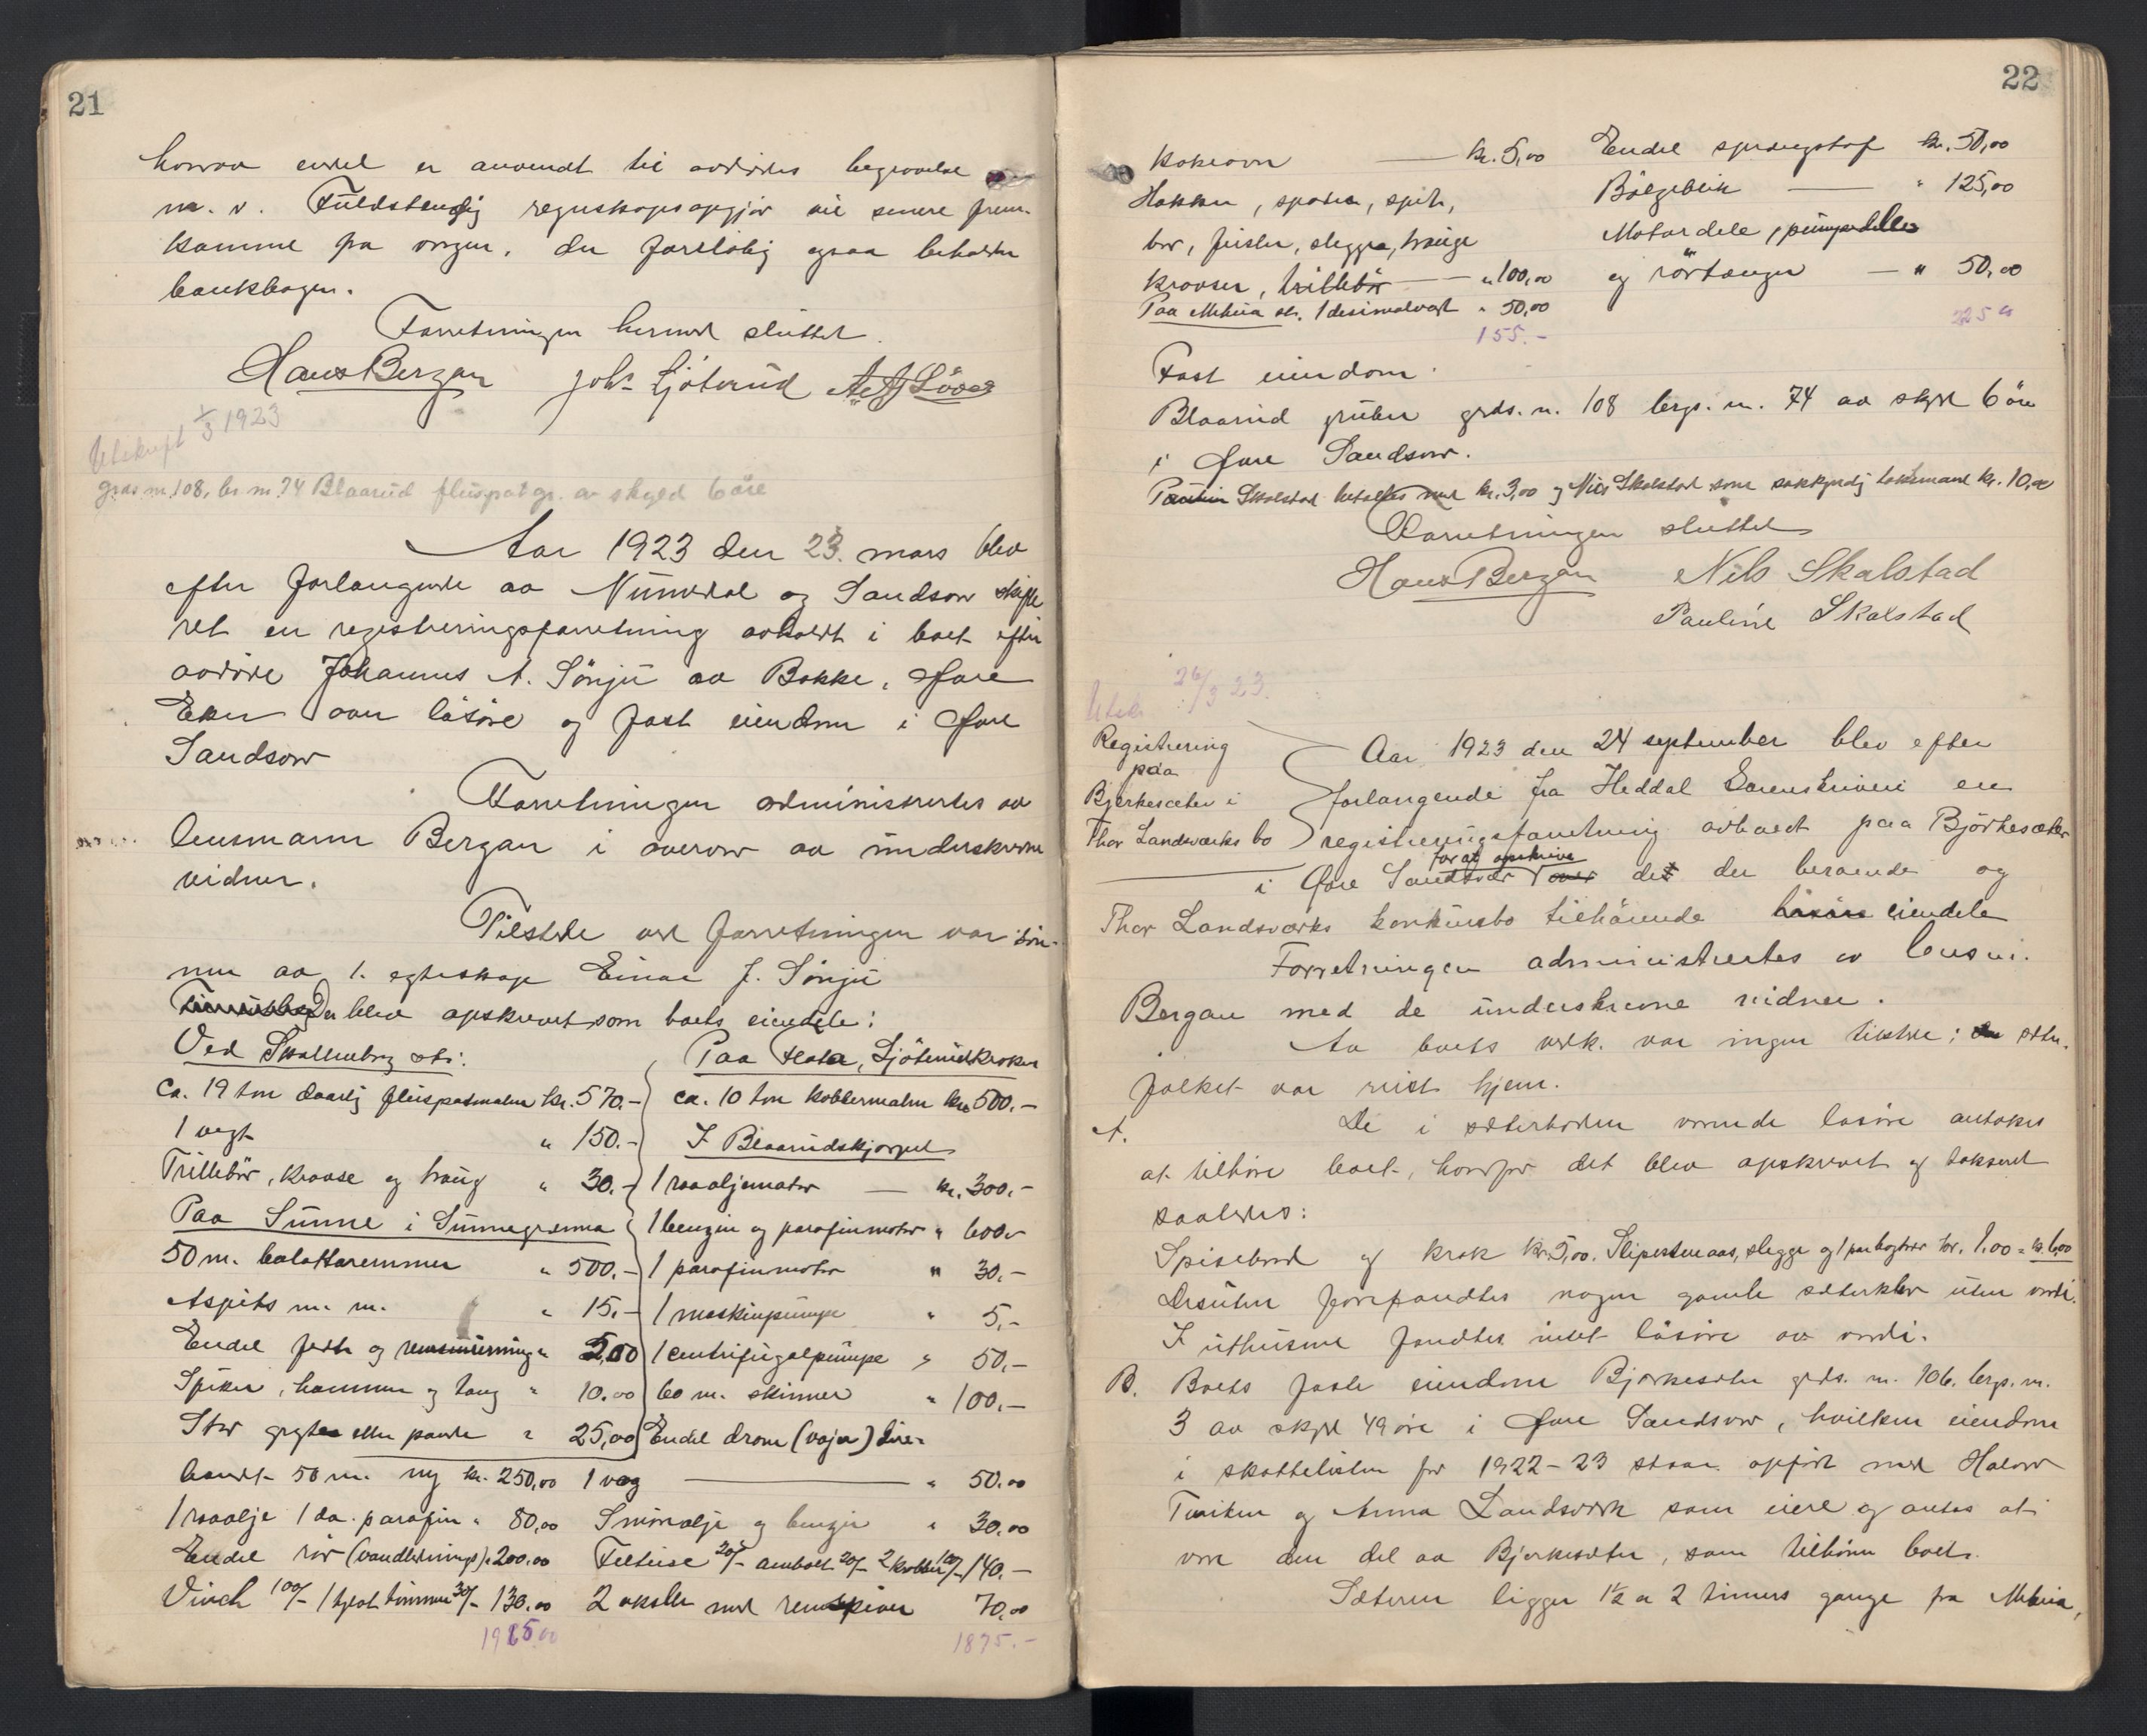 21
hvorav endel er anvendt til avdødes begravelse
m. v. Fuldstendig regnskapsopgjør vil senere frem-
komme fra vergen, der foreløbig ogsaa beholder
bankbogen.
Forretningen hermed sluttet.
Hans Bergan Johs Ljöterud
Utskrift 1/3 1923
grds. nr. 108, br nr. 74 Blaarud fluspatgr. av skyld 6 öre
Aar 1923 den 23. mars blev
efter forlangende av Numedal og Sandsvær skifte
ret en registreringsforretning avholdt i boet efter
avdøde Johannes A. Sönju av Bakke, Øvre
Eker over løsøre og fast eiendom i Øvre
Sandsvær
Forretningen administrertes av
lensmann Bergan i overvær av underskrevne
vidner.
Tilstede ved forretningen var søn-
nen av 1. egteskap Einar J. Sönju
Der blev opskrevet som boets eiendele:
Ved Skollenborg st.:
Ca. 19 ton daarlig fluspatmalm kr. 570.-
1 vegt " 150.-
Trillebör, kravse og traug " 30.-
Paa Sunne i Sunnegrenna
50 m. balattaremmer " 500.-
Aspits m. m. " 15.-
Endel fedt og remsmurning " 5,00
Spiker, hammer og tang " 10.00
Stor gryte eller pande " 25,00
Paa Flata, Ljöterudkroken
ca. 10 ton kobbermalm kr. 500.-
I Blaarudskjerpet
1 raaoljemotor — kr. 300.-
1 benzin og parafinmotor " 600.-
1 parafinmotor " 30.-
1 maskinpumpe " 5.-
1 centrifugalpumpe " 50.-
60 m. skinner " 100.-
Endel drom (vajer) lire-
baand 50 m. ny kr. 250,00 1 vog — " 50.00
1 raaolje 1 do. parafin " 80,00 Smöreolje og benzin " 30,00
Endel rör (vandlednings) " 200.00 Feltesse 20/- ambolt 20/- 140.-
Vinch 100/- 1 tylvt timmer 30/- 130.00 2 aksler med remskiver 70,00
1965.00 1875.-
22
Kokeovn — kr. 5,00
Hakker, spader, spett,
bor, feisler, slegger, trauge
kravser, trillebör — " 100,00
Paa Meheia st. 1 desimalvegt " 50,00
155.-
Endel sprængstof kr. 50,00
Bölgeblik — " 125,00
Motordele, pumpedeler
og rörtænger — " 50,00
225 00
Fast eiendom:
Blaarud gruber grds. n. 108 brgs. n. 74 av skyld 6 öre
i Øvre Sandsvær.
Paulin Skalstad betaltes med kr. 3,00 og Nils Skalstad som sakkyndig takstmand kr. 10,00
Forretningen sluttet
Hans Bergan Nils Skalstad
Pauline Skalstad
Utskr. 26/3 23.
Registrering
paa
Bjerkesæter i
Thor Landsværks bo
Aar 1923 den 24 september blev efter
forlangende fra Heddal Sorenskriveri en
registreringsforretning avholdt paa Björkesæter
i Øvre Sandsvær for at opskrive over det der beroende og
Thor Landsværks konkursbo tilhörende løsøre eiendele
Forretningen administrertes av lensm.
Bergan med de underskrevne vidner.
Av boets vedk. var ingen tilstede; sæter-
folket var reist hjem.
A. De i sæterboden værende løsøre antokes
at tilhøre boet, hvorfor det blev opskrevet og taksert
saaledes:
Spisebord og krak kr. 5,00. Slipestenaas, slegge og 1 par bogtrær kr. 1.00 = kr. 6,00
Desuten forefandtes nogen gamle sæterklær uten verdi.
I uthusene fandtes intet løsøre av verdi.
B. Boets faste eiendom Bjerkesæter grds. nr. 106. brgs. nr.
3 av skyld 49 øre i Øvre Sandsvær, hvilken eiendom
i skattelisten for 1922-23 staar opført med Halvor
Tveiten og Anna Landsverk som eiere og antas at
være den del av Bjerkesæter, som tilhører boet.
Sæteren ligger 1½ a 2 timers gange fra Meheia,